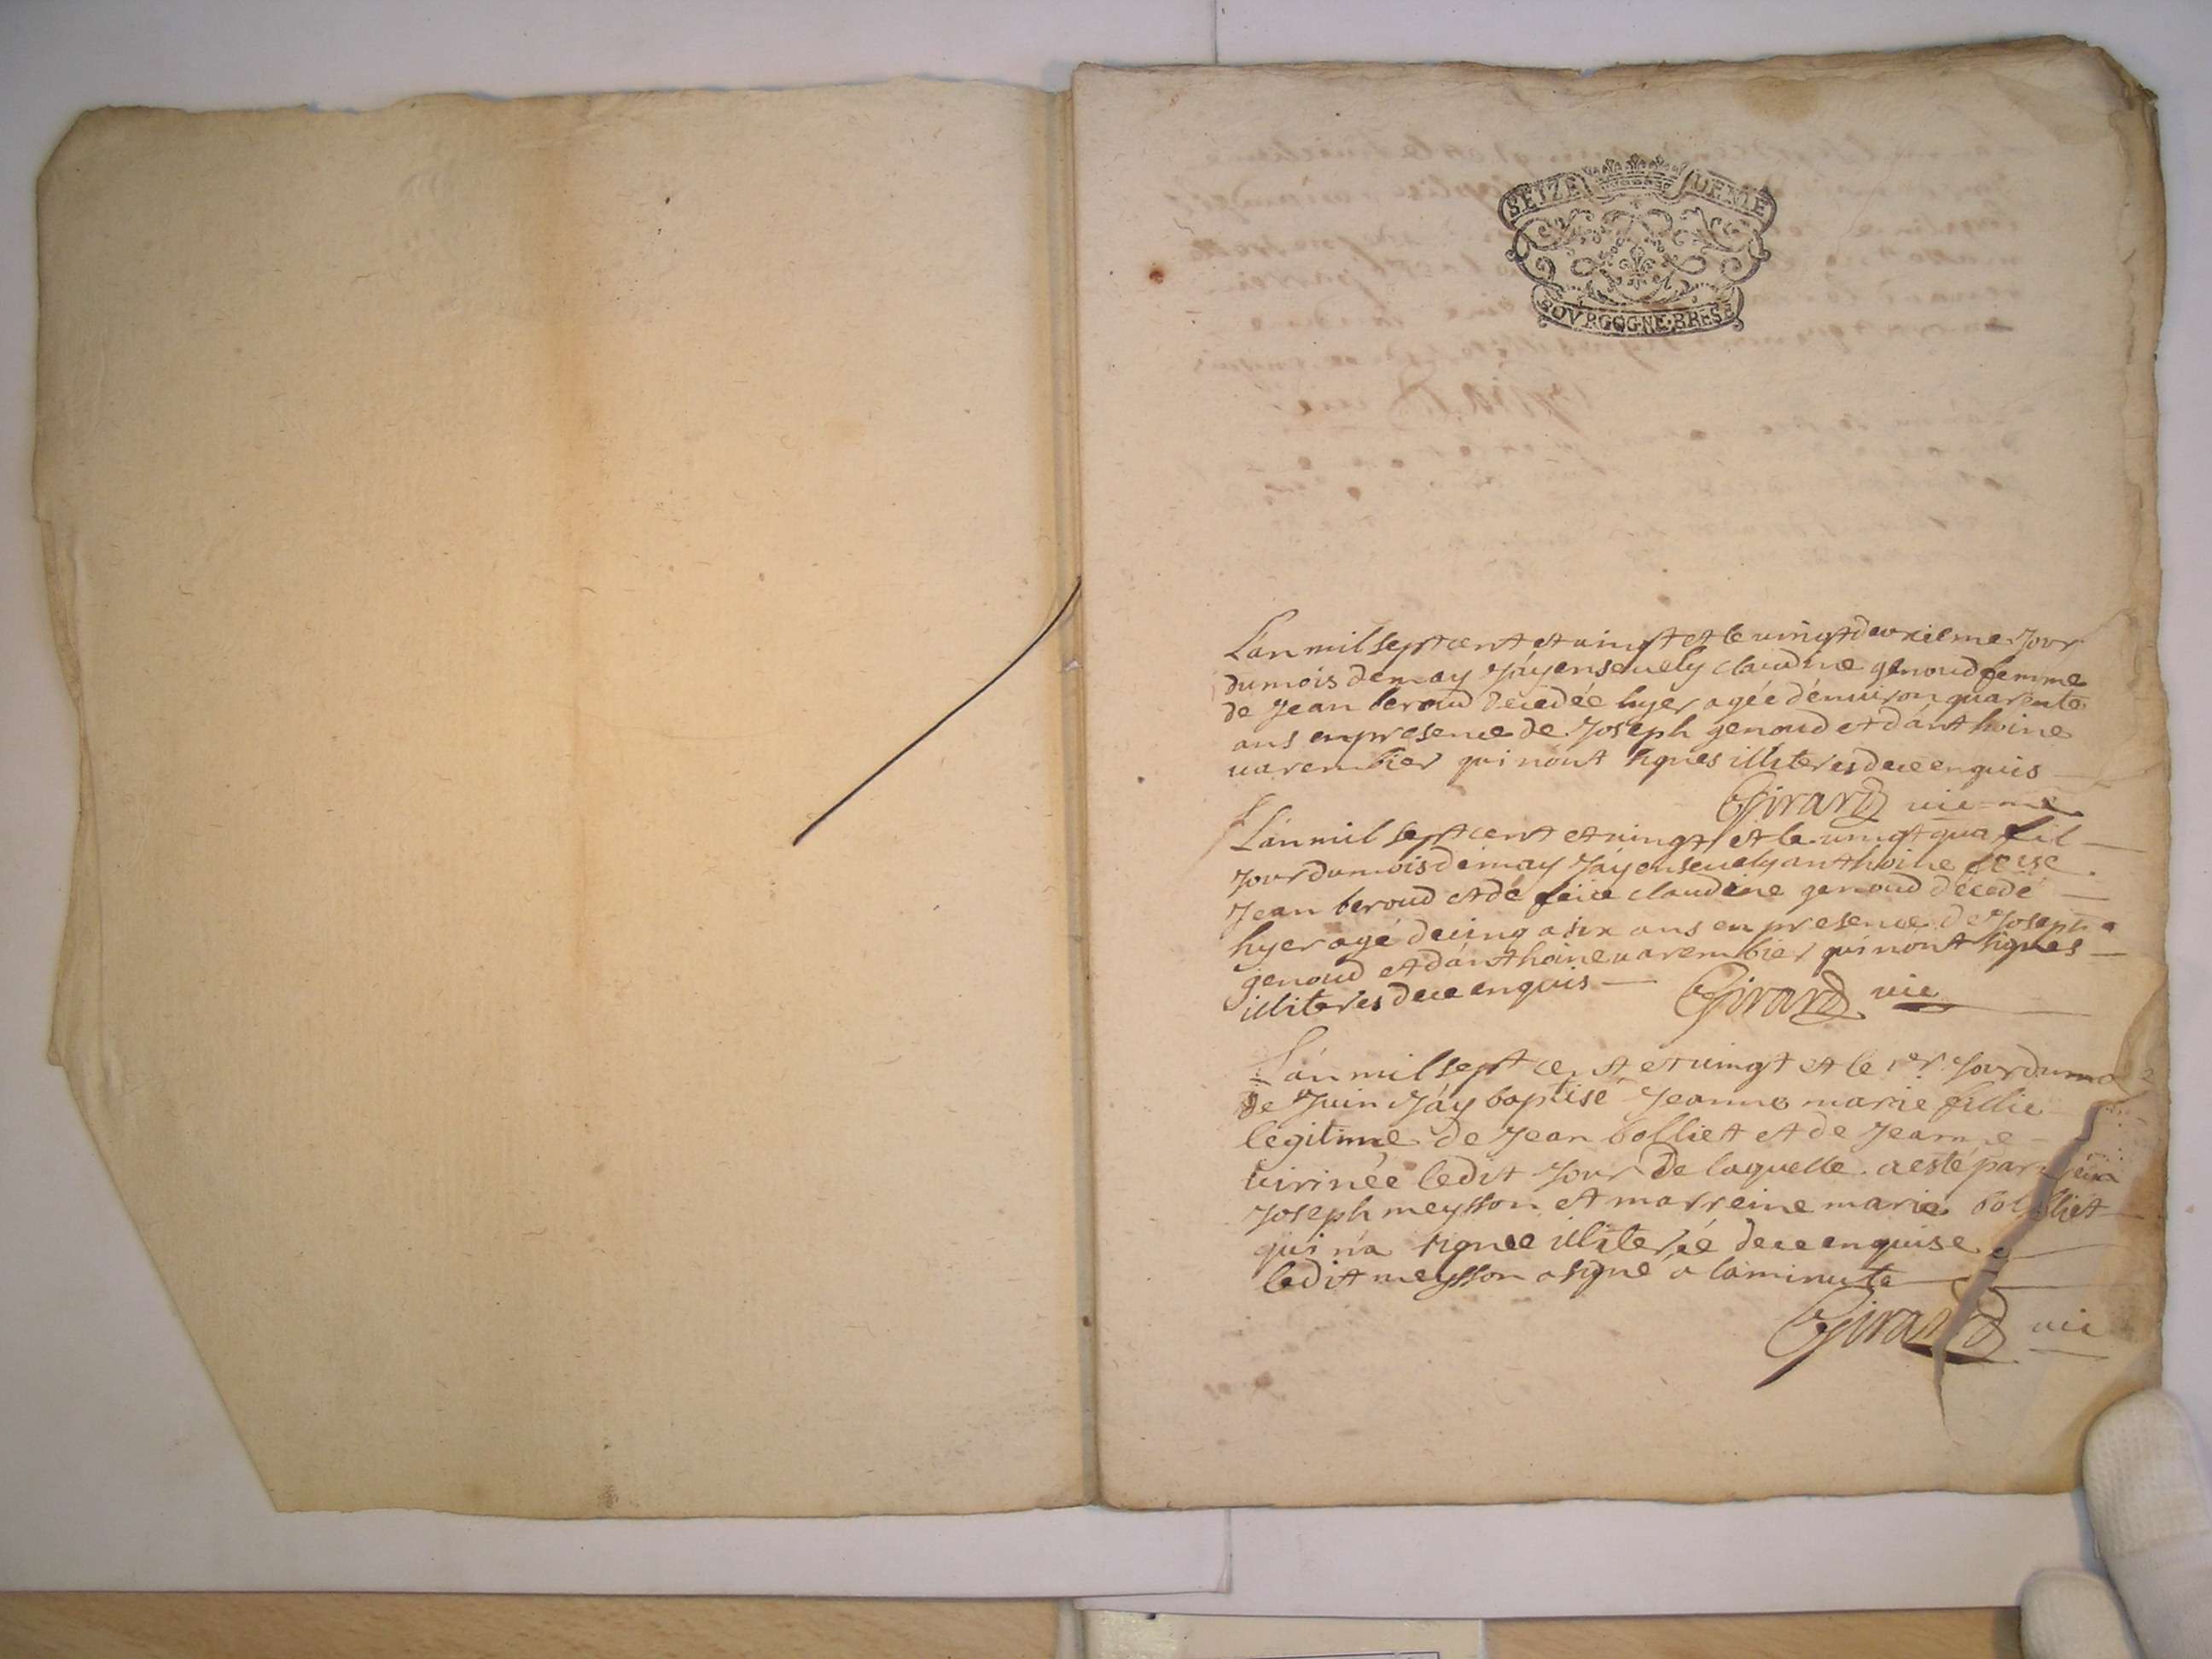 SEIZE DENIE
BOURGOGNE·BRESE
Lan mil sept cent et vingt et le vingt deuxieme Jour
du mois de may J'ay enseuely claudine genoud femme
de Jean beroud decedée hyer agée d'enuiron quarente
ans en presence de Joseph genoud et d'anthoine
uarembier qui n'ont signes illiteres de ce enquis
Girard vic
L'an mil sept cent et vingt et le vingt qua
Jour du mois de may J'ay enseuely anthoine fil
Jean beroud et de feüe claudine genoud décedé
hyer agé de cinq a six ans en presence de Joseph
genoud et d'anthoine uarembier qui n'ont signes
illiteres de ce enquis Girard vic
L'an mil sept cent et vingt et le 1er Jour du mo
de Juin J'ay baptisé Jeanne marie fillie
légitime de Jean bolliet et de Jeanne
uirinée ledit Jour de laquelle a esté par
Joseph meysson et marreine marie bolliet
qui n'a signée illiterée de ce enquise
ledit meysson a signé a la minute
Girard vic